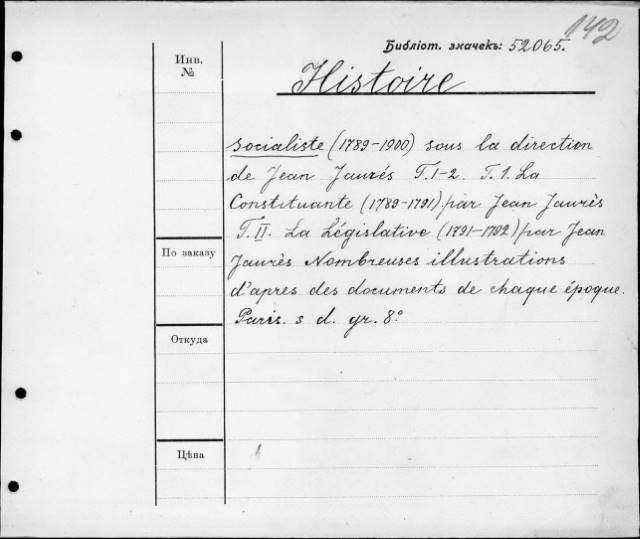 142
Библіот. значекъ: 52065.
Инв.
№
Histoire
socialiste (1789-1900) sous la direction
de Jean Jaurés T.1-2. T.1. La
Constituante (1789-1791) par Jean Jaurès
T. II. La Législative (1791-1792) par Jean
По заказу
Jaurès Nombreuses illustrations
d'après des documents de chaque époque.
Paris. s d. gr. 8°
Откуда
Цѣна